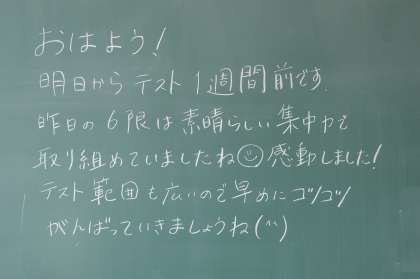 おはよう！
明日からテスト1週間前です.
昨日の6限は素晴らしい集中力で
取り組めていましたね☺感動しました！
テスト範囲も広いので早めにコツコツ
がんばっていきましょうね(^^)